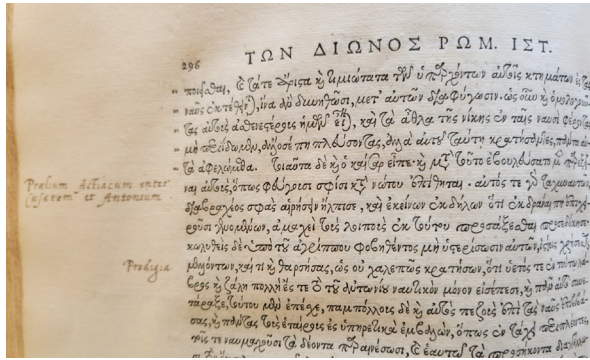 296 ΤΩΝ ΔΙΩΝΟΣ ΡΩΜ. ΙΣΤ.
„ ποιεῖσθαι, καὶ τά τε ἄριστα καὶ τιμιώτατα τῶν ὑπαρχόντων αὐτοῖς κτημάτων ἐς τὰς
„ ναῦς ἐκτεθεῖσθαι, ἵνα ἂν δυνηθῶσι, μετ' αὐτῶν διαφύγωσιν. ὡς οὖν καὶ ὁμολογοῦν
„ τας αὐτοὺς ἀσθενεστέρους ἡμῶν εἶναι, καὶ τὰ ἆθλα τῆς νίκης ἐν ταῖς ναυσὶ φέροντας
„ μὴ περιίδωμεν ἄλλοσέ πη πλεύσοντας, ἀλλὰ αὐτοῦ ταύτῃ κρατήσαντες, πάντα αὐ
„ τὰ ἀφελώμεθα. τοιαῦτα δὲ καὶ ὁ καῖσαρ εἶπε· καὶ μετὰ τοῦτο ἐβουλεύσατο μὲν παρεῖ
ναι αὐτούς, ὅπως φεύγουσί σφισι κατὰ νώτου ἐπίθηται· αὐτός τε γὰρ ταχυναυτῶν
διὰ βραχέος σφᾶς αἱρήσειν ἤλπισε, καὶ ἐκείνων ἐκδήλων ὅτι ἐκδρᾶναι ἐπιχει
ροῦσι γενομένων, ἀμαχεὶ τοὺς λοιποὺς ἐκ τούτου προσάξεσθαι προσεδόκησε·
κωλυθεὶς δὲ ὑπὸ τοῦ ἀγρίππου φοβηθέντος μὴ ὑστερίσωσιν αὐτῶν, ἱστίοις χρήσεσθ
μελλόντων, καί τι καὶ θαρσήσας, ὡς οὐ χαλεπῶς κρατήσων, ὅτι ὑετός τε ἐν τούτῳ λά
βρος καὶ ζάλη πολλὴ ἔς τε τὸ τοῦ ἀντωνίου ναυτικὸν μόνον εἰσέπεσε, καὶ πᾶν αὐτὸ συνε
τάραξε, τούτου μὲν ἐπέσχε, παμπόλλους δὲ καὶ αὐτὸς πεζοὺς ἐπὶ τὰς ναῦς ἐπεσβιβά
σας, καὶ πάντας τοὺς ἑταίρους ἐς ὑπηρετικὰ ἐμβαλών, ὅπως ἐν τάχει περιπλέοντες,
τοῖς τε ναυμαχοῦσι τὰ δέοντα παραινέσωσι, καὶ ἑαυτῷ τὰ προσήκοντα διαγγέλλ
Prœlium Actiacum inter
Cæsarem et Antonium
Prodigia